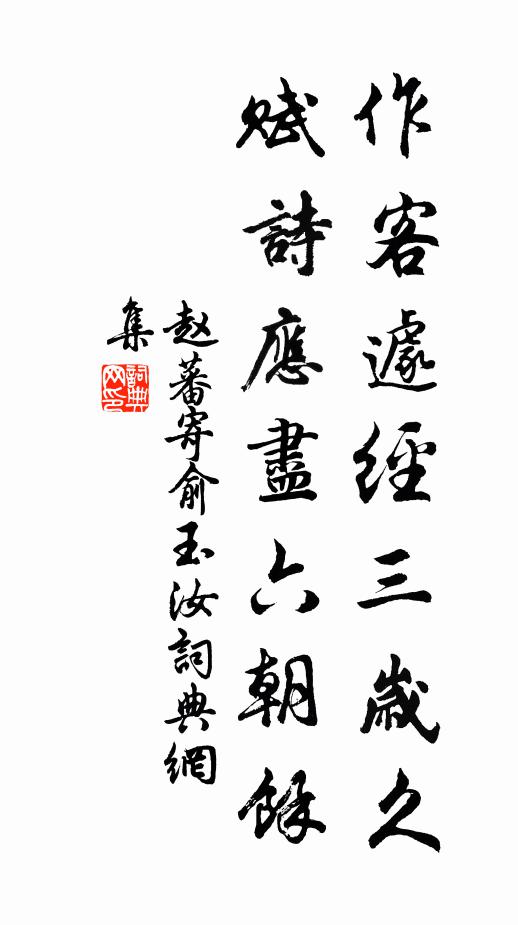 作客遽經三歲久
賦詩應盡六朝餘
赵蕃寄俞玉汝詞典網
集
詞典
网印